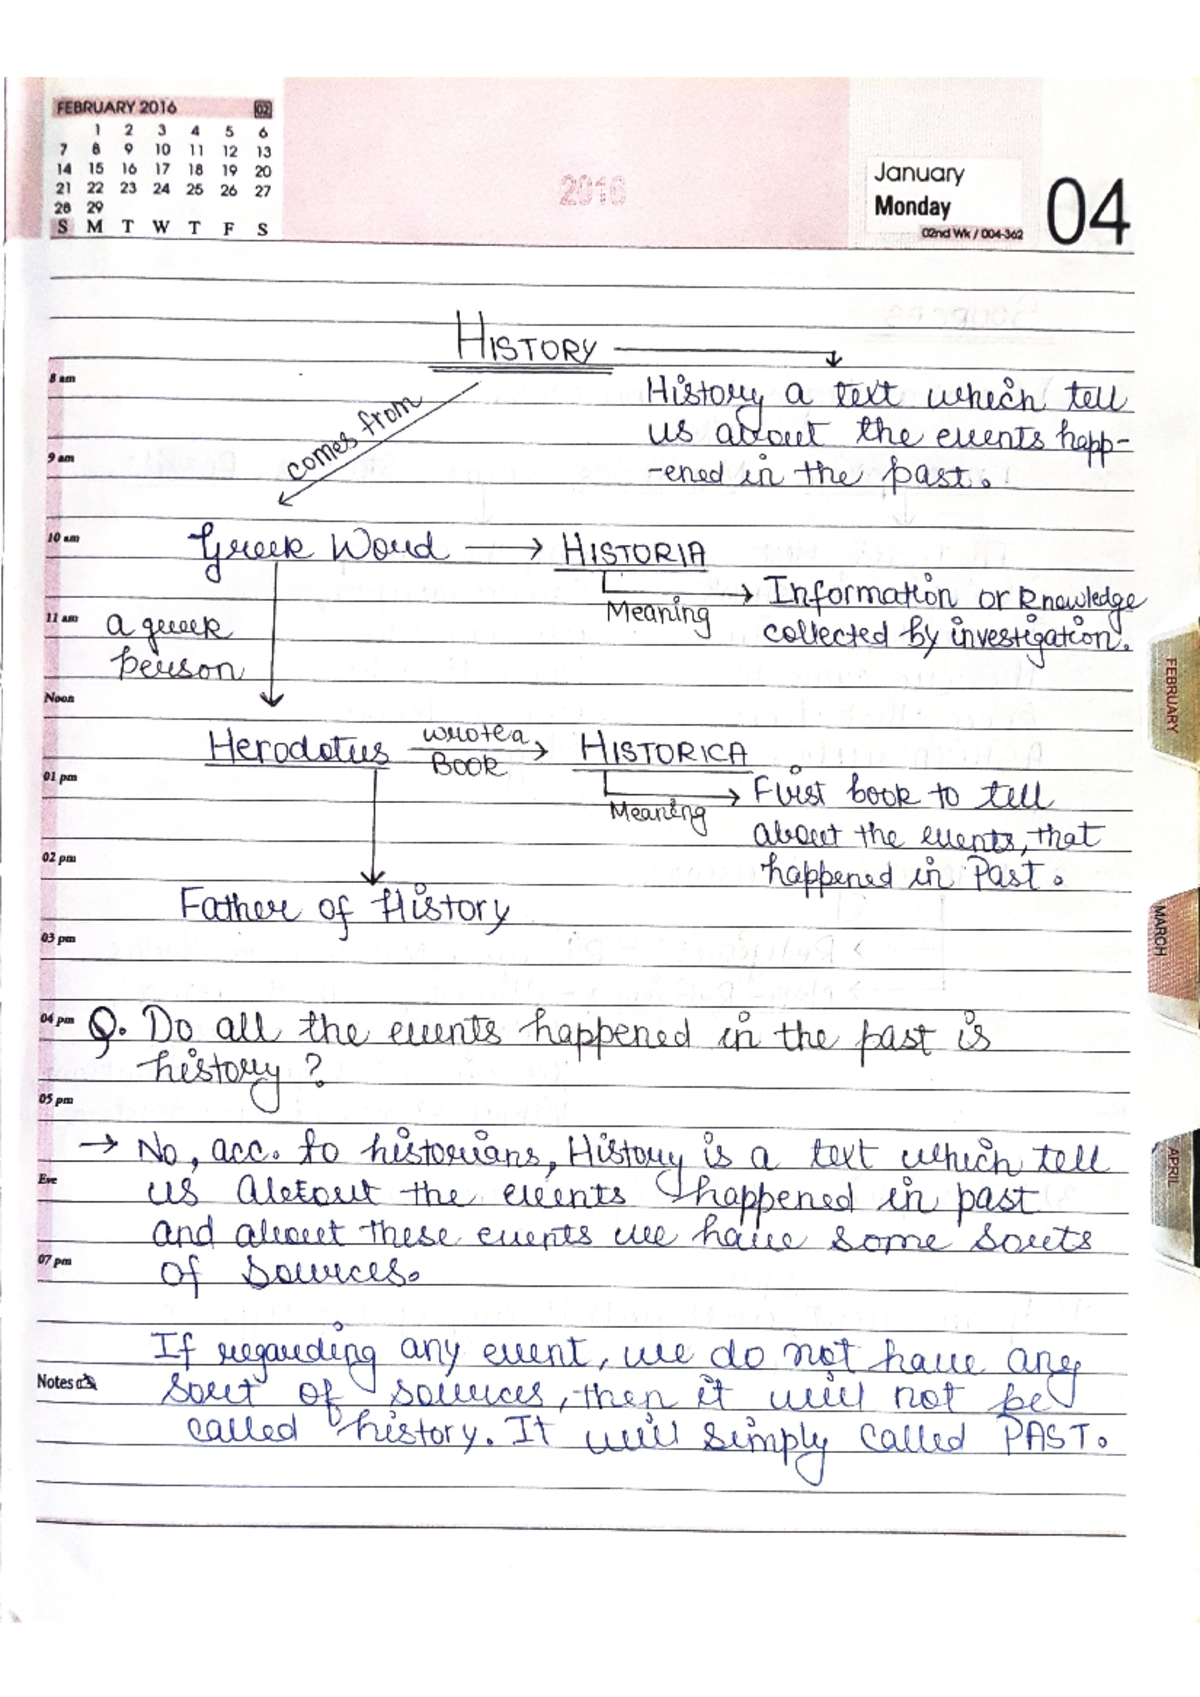 FEBRUARY 2016 02
1 2 3 4 5 6
7 8 9 10 11 12 13
14 15 16 17 18 19 20
21 22 23 24 25 26 27
28 29
S M T W T F S
2016
January
Monday
02nd Wk / 004-362
04
HISTORY
8 am
History a text which tell
us about the events happ-
-ened in the past.
comes from
9 am
10 am
Greek Word → HISTORIA
Meaning
Information or knowledge
collected by investigation.
11 am
a greek
person
Noon
Herodotus wrote a Book → HISTORICA
01 pm
Meaning
First book to tell
about the events, that
happened in Past.
02 pm
Father of History
03 pm
04 pm
Q. Do all the events happened in the past is
history?
05 pm
→ No, acc. to historians, History is a text which tell
Eve
us about the events happened in past
and about these events we have some sorts
07 pm
of sources.
If regarding any event, we do not have any
Notes
sort of sources, then it will not be
called history. It will simply called PAST.
FEBRUARY
MARCH
APRIL